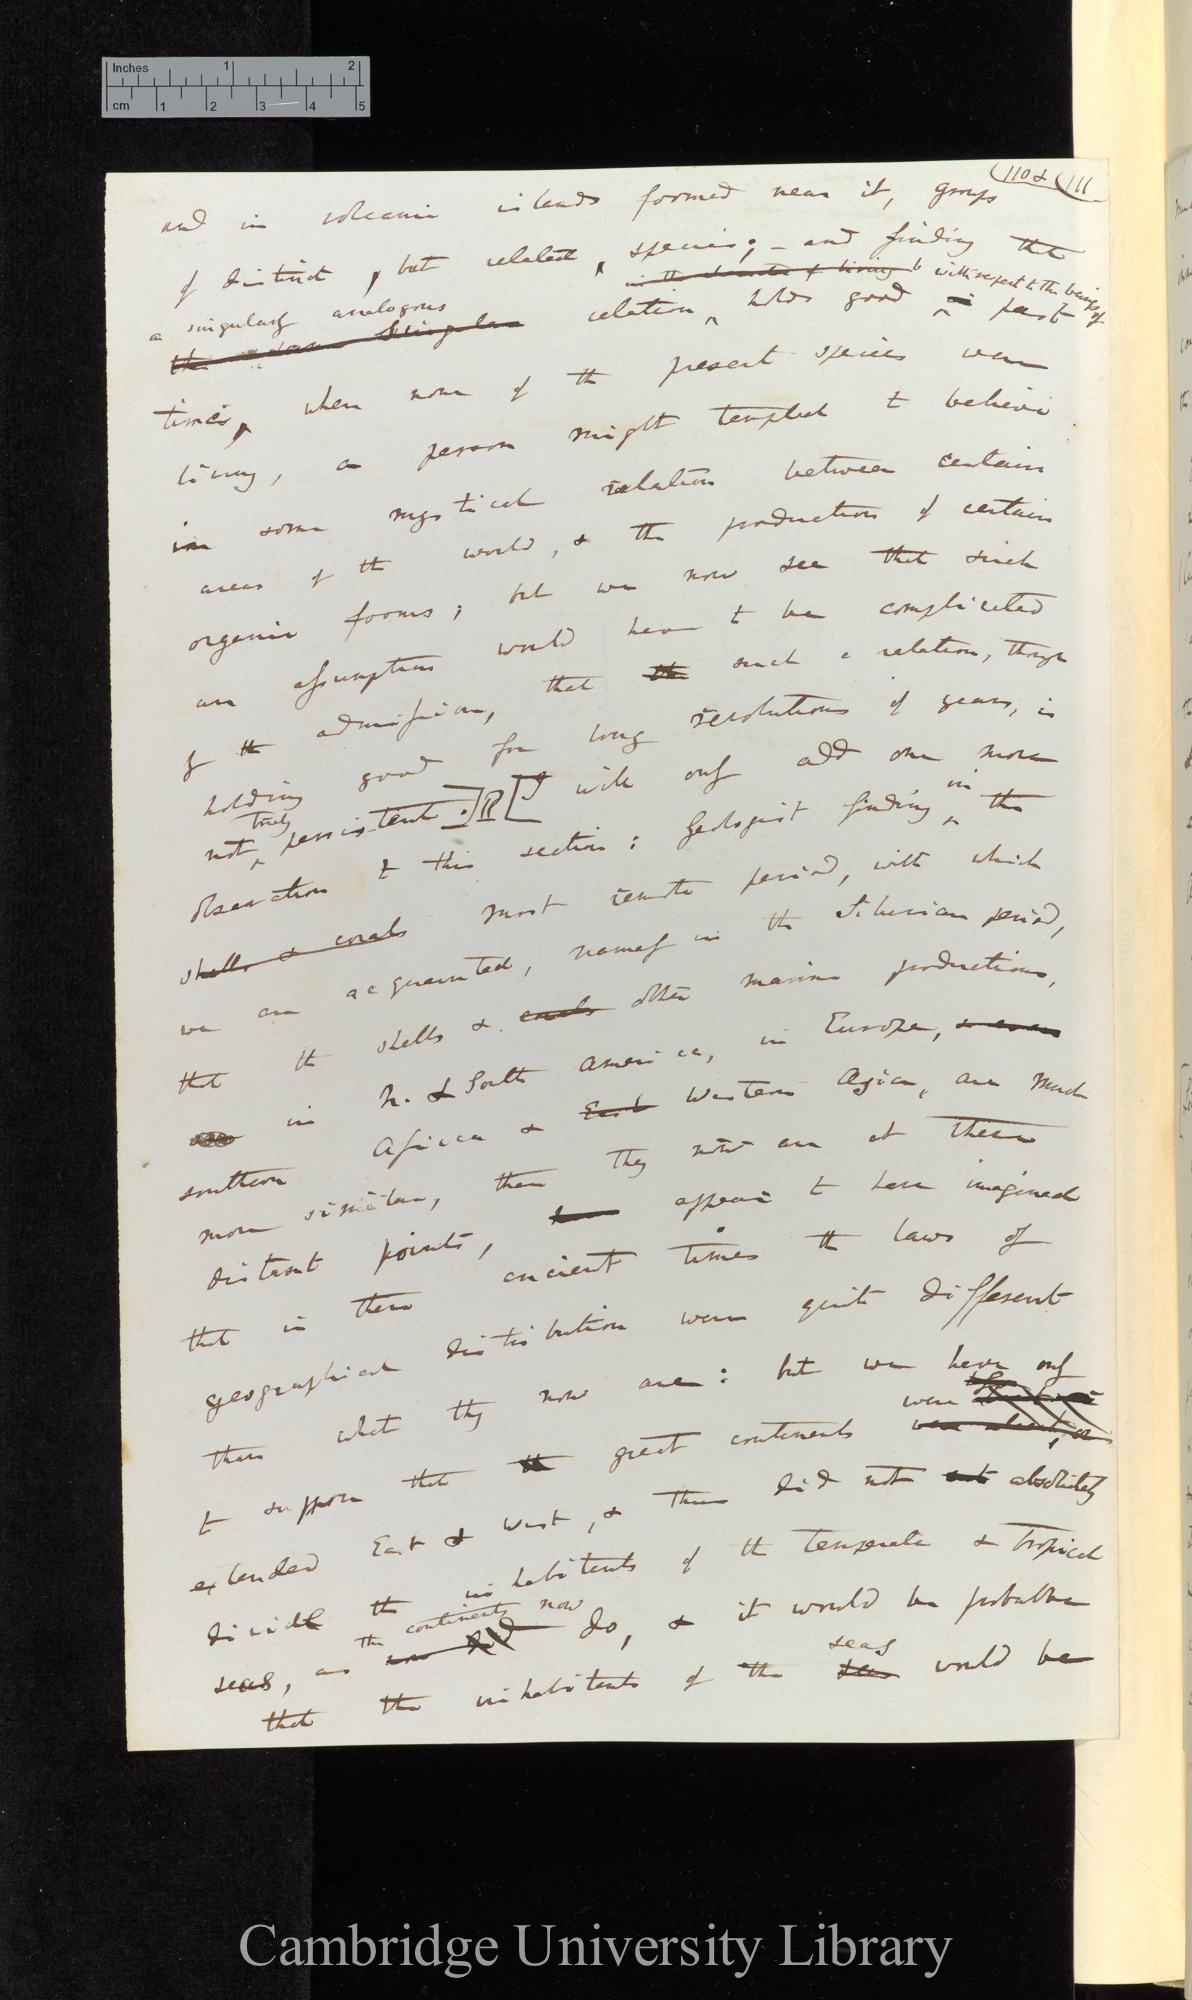 Inches 1 2
cm 1 2 3 4 5
110 & 111
and in volcanic islands formed near it, groups
of distinct, but related, species; – and finding that
with respect to the beings of
a singularly analogous relation holds good past
times, when none of the present species were
living, a person might tempted to believe
in some mystical relation between certain
areas of the world, & the production of certain
organic forms; but we now see that such
an assumption would have to be complicated
by the admission, that such a relation, though
holding good for long revolutions of years, is
truly
not persistent.] [I will only add one more
in
observation to this section: Geologist finding the
shells & corals most remote period, with which
we are acquainted, namely in the Silurian period,
that the shells & corals other marine productions,
in N. & South America, in Europe, & even
southern Africa & East Western Asia, are much
more similar, than they now are at these
distant points, appear to have imagined
that in these ancient times the laws of
geographical distribution were quite different
than what they now are: but we have only
were
to suppose that the great continents
extended East & West, & thus did not absolutely
divide the inhabitants of the temperate & tropical
the continents now
seas, as do, & it would be probable
seas
that the inhabitants of the seas would be
Cambridge University Library